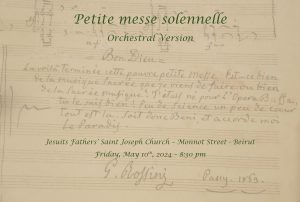 Petite messe solennelle
Orchestral Version
Bon Dieu
La voilà terminée cette pauvre petite Messe. Est-ce bien
de la musique
Opera Buffa
tu le sais bien! Peu de science un peu de cœur
tout est là. Sois donc Béni, et accorde moi
Le Paradis
Jesuits Fathers' Saint Joseph Church - Monnot Street - Beirut
Friday, May 10th, 2024 - 8:30 pm
G. Rossini
Passy. 1863.